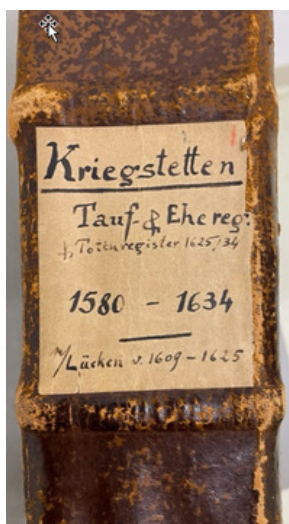 Kriegstetten
Tauf & Ehereg:
& Totenregister 1625/34
1580 - 1634
m/Lücken v. 1609 - 1625